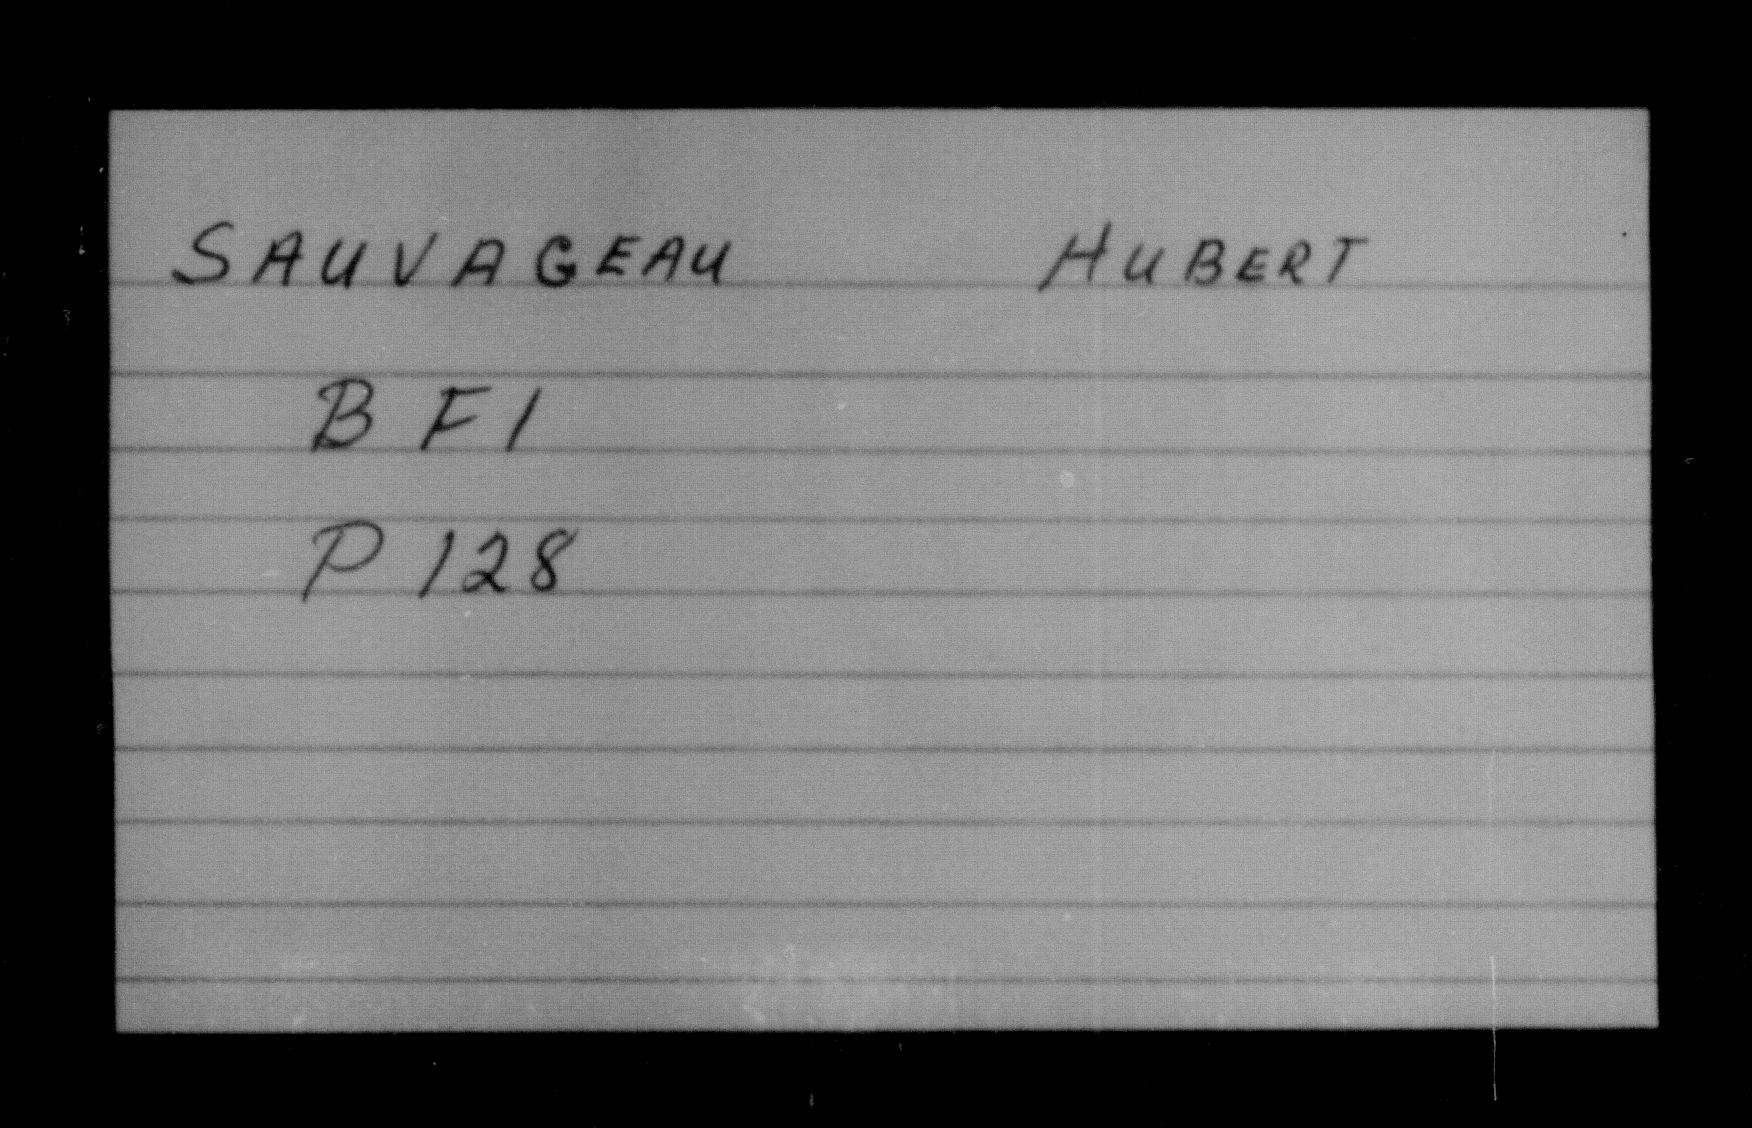 SAUVAGEAU HUBERT
B F1
P 128